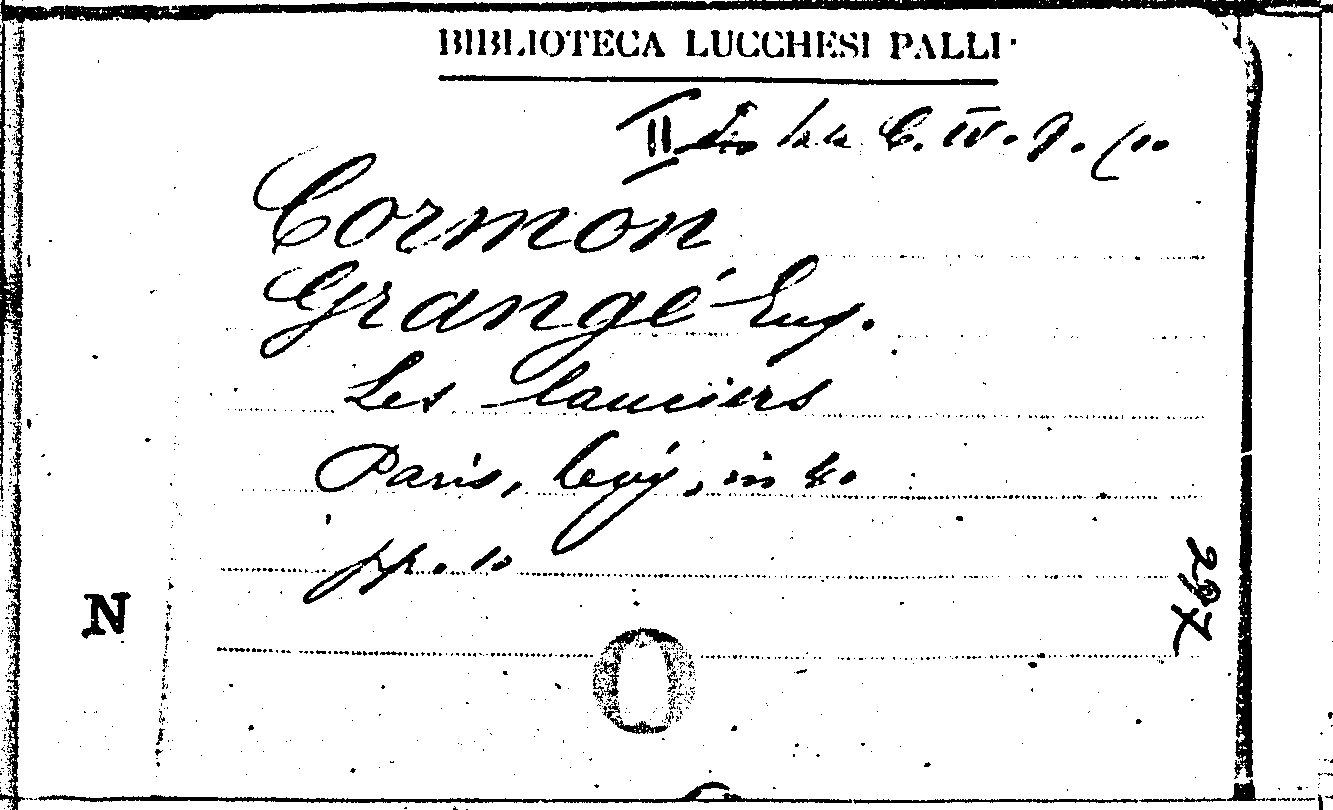 BIBLIOTECA LUCCHESI PALLI
II Sala C. IV. 7. (10
Cormon
Grangé Eug.
Les lanciers
Paris, Levy, in 4o
pp. 10
N
297